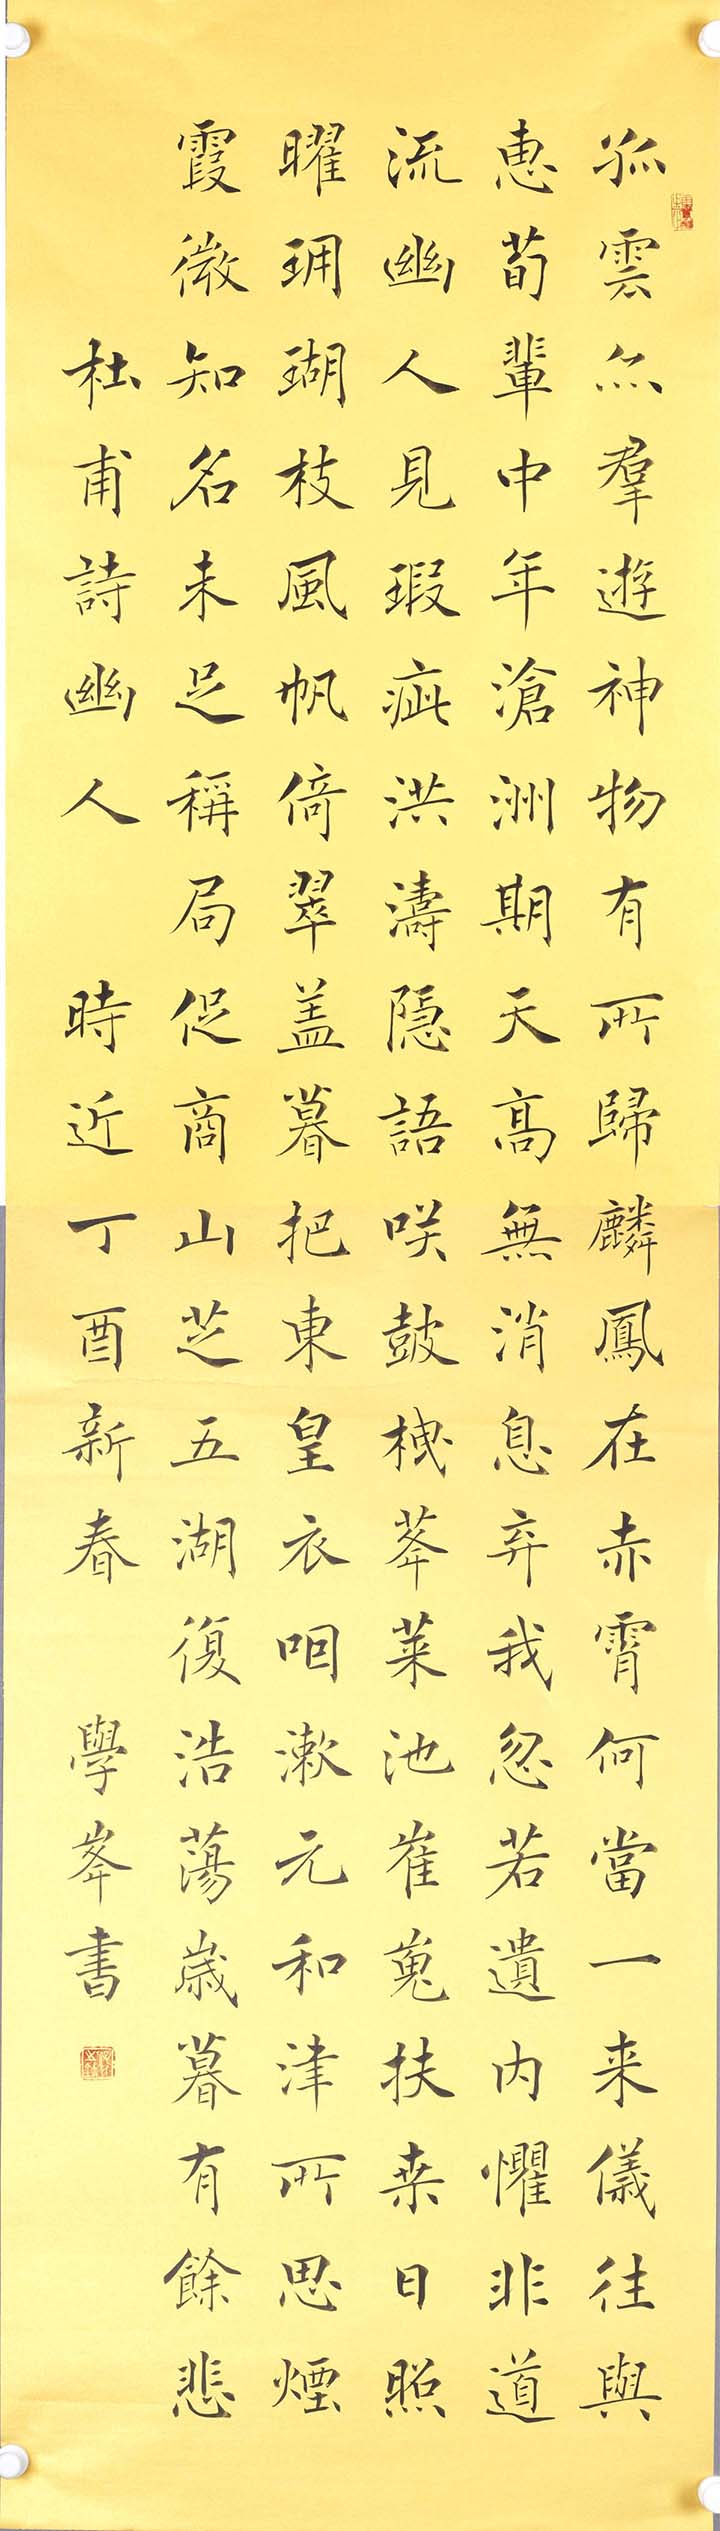 孤雲亦羣遊神物有所歸麟鳳在赤霄何當一来儀往與
惠荀輩中年滄洲期天高無消息弃我忽若遺内懼非道
流幽人見瑕疵洪濤隐語咲鼓枻莑萊池崔嵬扶桒日照
曜珊瑚枝風帆倚翠盖暮把東皇衣咽漱元和津所思煙
霞微知名未足稱局促商山芝五湖復浩蕩歳暮有餘悲
杜甫詩幽人 時近丁酉新春 學峯書